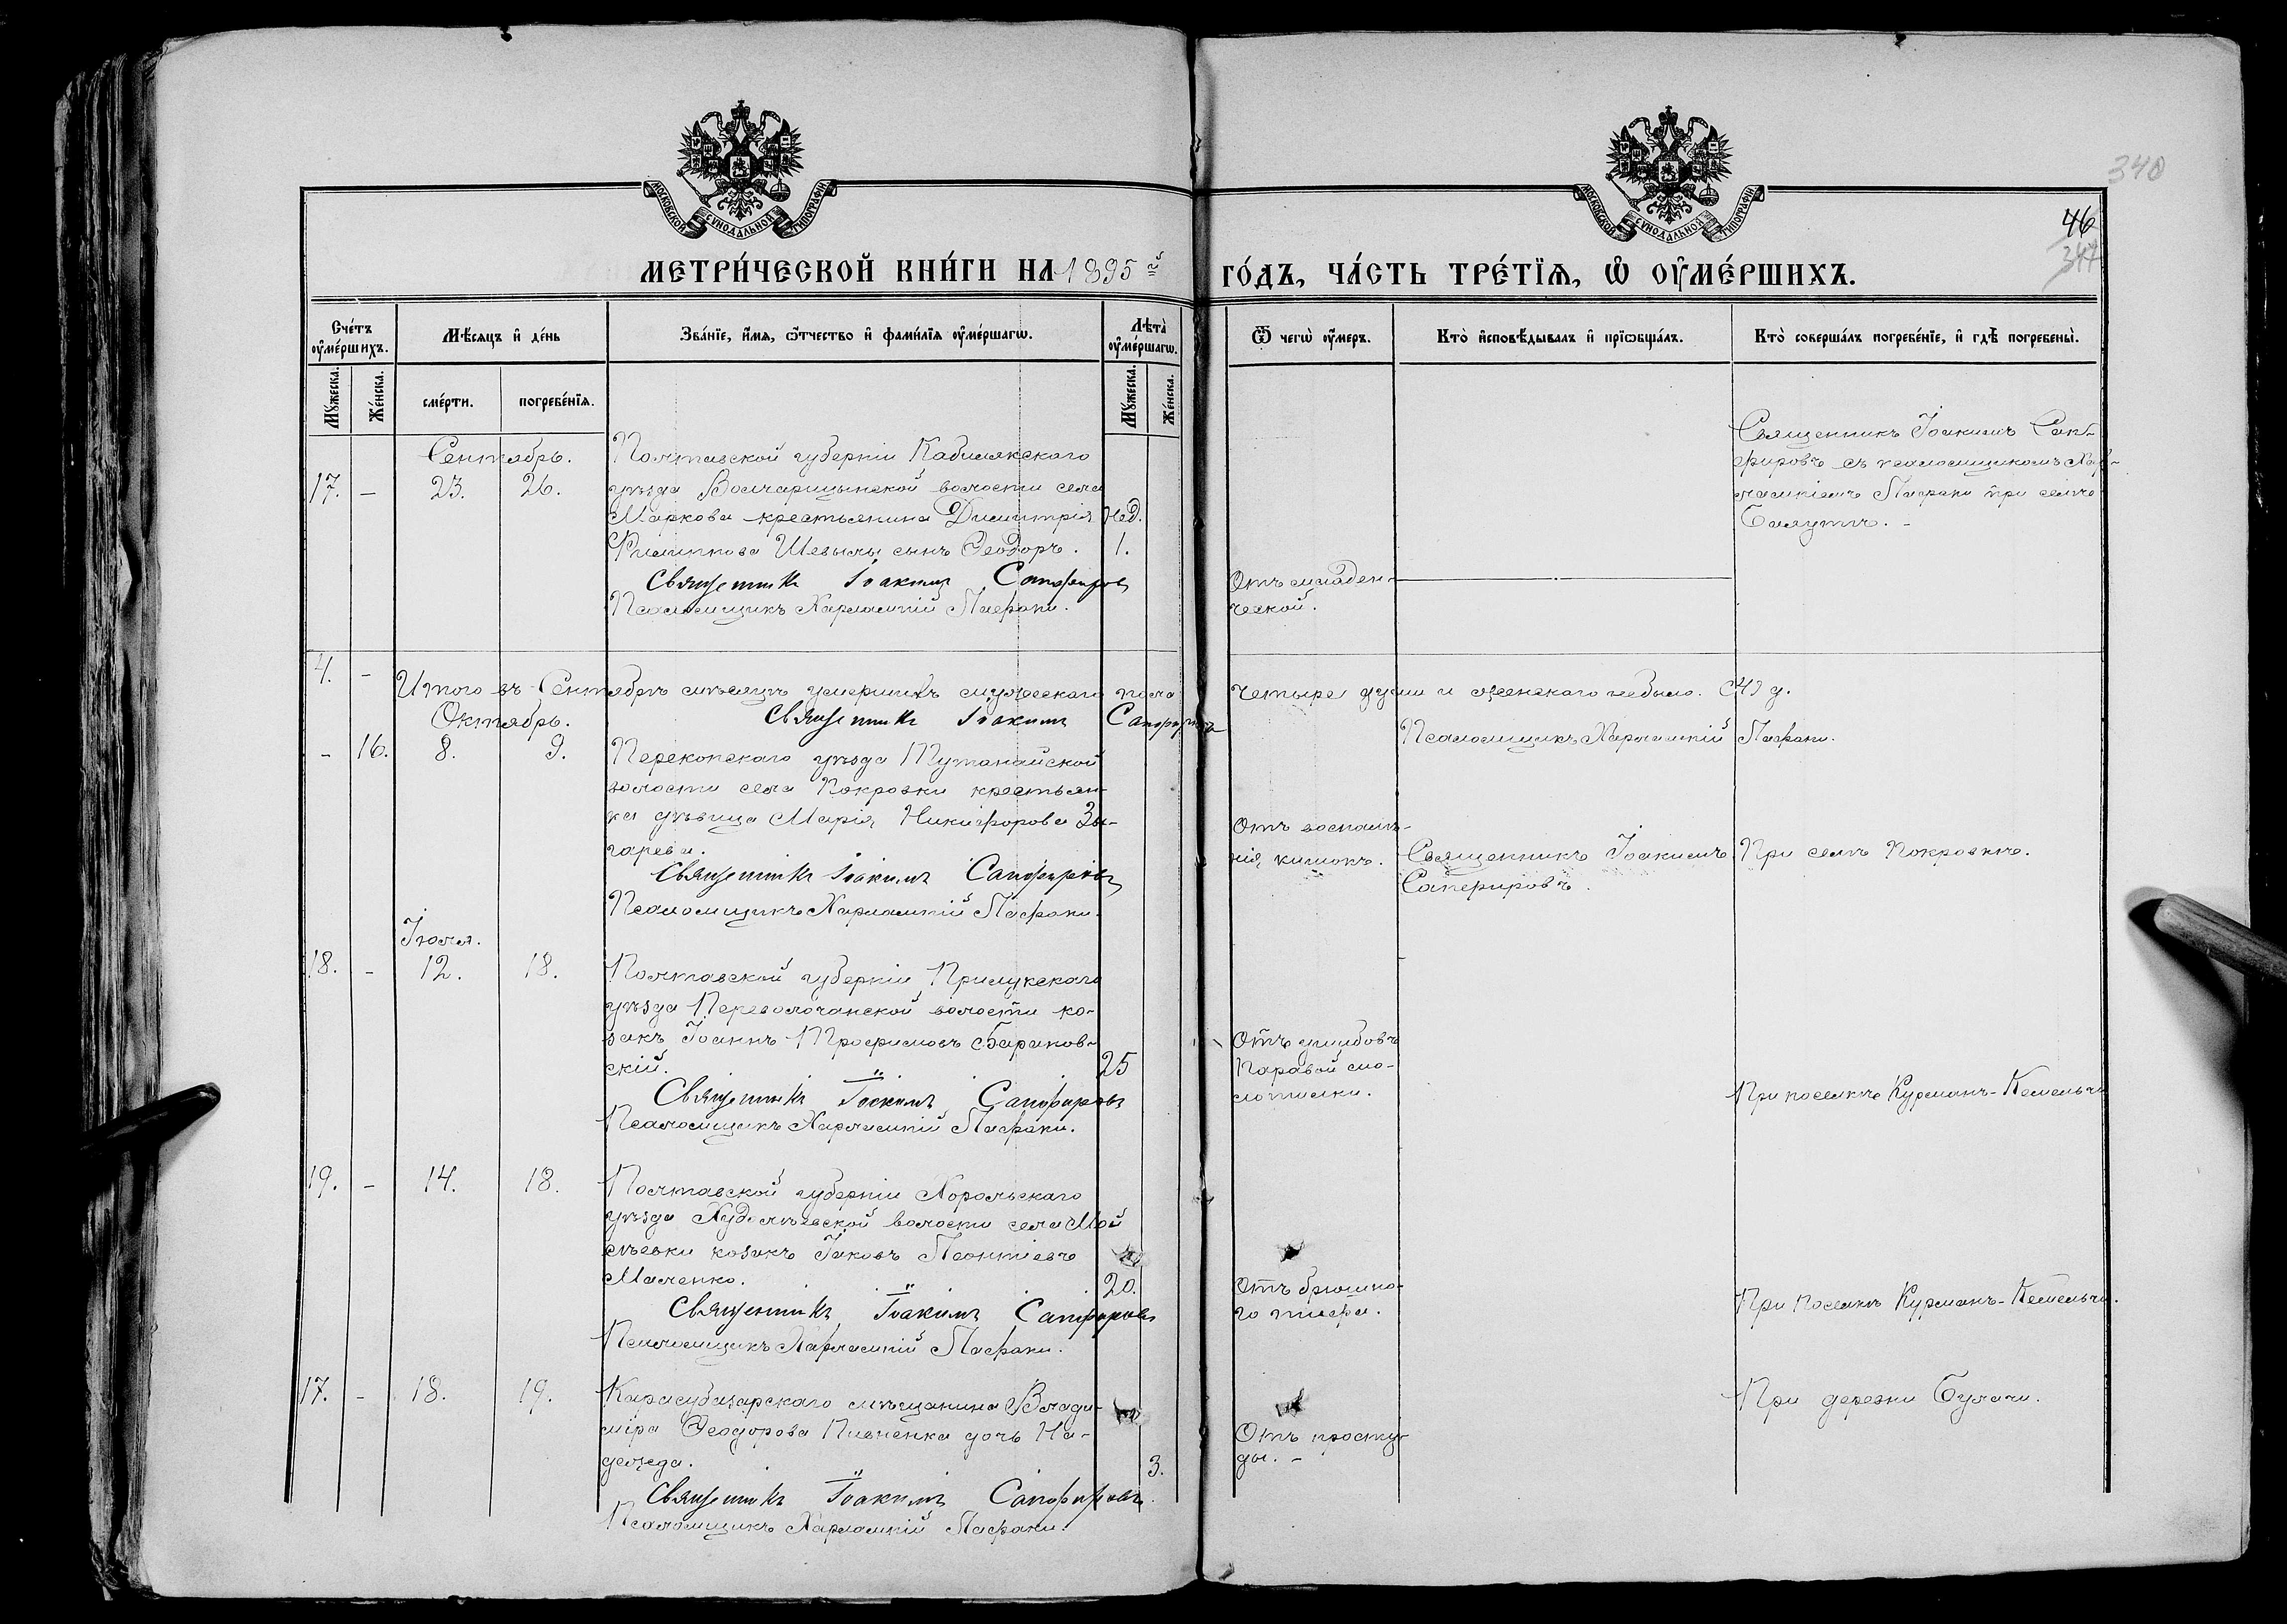 МОСКОВСКОЙ СУНОДАЛЬНОЙ ТИПОГРАФІИ
МОСКОВСКОЙ СУНОДАЛЬНОЙ ТИПОГРАФІИ
340
46
347
МЕТРИ́ЧЕСКОЙ КНИ́ГИ НА 1895й
ГО́ДЪ, ЧА́СТЬ ТРЕ́ТЇѦ, Ѡ҆ ОУ҆МЕ́РШИХЪ.
Сче́тъ оу҆ме́ршихъ.
Мꙋ́жеска.
Же́нска.
Мѣ́сѧцъ и҆ де́нь
сме́рти.
погребе́нїѧ.
Зва́нїе, и҆́мѧ, ѻ҆́тчество и҆ фами́лїѧ оу҆ме́ршагѡ.
Лѣ́та оу҆ме́ршагѡ.
Мꙋ́жеска.
Же́нска.
Ѿ чегѡ̀ оу҆́меръ.
Кто̀ и҆сповѣ́дывалъ и҆ прїѡбща́лъ.
Кто̀ соверша́лъ погребе́нїе, и҆ гдѣ̀ погребены̀.
Сентябрь.
17. – 23. 26.
Полтавской губерніи Кабилякскаго
уѣзда Волчарицынской волости села
Маркова крестьянина Димитрія
Филиппова Шевылы сынъ Ѳеодоръ.
Нед.
1.
Священникъ Іоакимъ Сапфировъ
Псаломщикъ Харлампій Пафаки.
Отъ младен-
ческой.
Священникъ Іоакимъ Сап-
фировъ съ псаломщикомъ Хар-
лампіемъ Пафаки при селѣ
4. –
Итого въ Сентябрѣ мѣсяцѣ умершихъ мужескаго пола
четыре души и женскаго небыло.
Священникъ Іоакимъ Сапфировъ
Псаломщикъ Харлампій Пафаки.
Октябрь.
– 16. 8. 9.
Перекопскаго уѣзда
волости села Покровки крестьян-
ка дѣвица Марія Никифорова Зы-
гарева.
Священникъ Іоакимъ Сапфировъ
Псаломщикъ Харлампій Пафаки.
Отъ воспале-
нія кишокъ.
Священникъ Іоакимъ
Сапфировъ.
При селѣ Покровкѣ.
Іюля.
18. – 12. 18.
Полтавской губерніи Прилукскаго
уѣзда Переволочанской волости ко-
закъ Іоаннъ Трофимовъ Баранов-
скій.
25
Священникъ Іоакимъ Сапфировъ
Псаломщикъ Харлампій Пафаки.
Отъ ушибовъ
паравой мо-
лотилки.
При поселкѣ Курманъ-Кемельчи
19. – 14. 18.
Полтавской губерніи Хорольскаго
уѣзда Худолѣевской волости села Мой
сѣевки козакъ Іаковъ Леонтіевъ
Маленко.
20.
Священникъ Іоакимъ Сапфировъ
Псаломщикъ Харлампій Пафаки.
Отъ брюшно-
го тифа.
При поселкѣ Курманъ-Кемельчи.
17. – 18. 19.
Карасубазарскаго мѣщанина Влади-
міра Ѳеодорова Пивненка дочь На-
дежда.
3.
Священникъ Іоакимъ Сапфировъ.
Псаломщикъ Харлампій Пафаки.
Отъ просту-
ды. –
При деревни